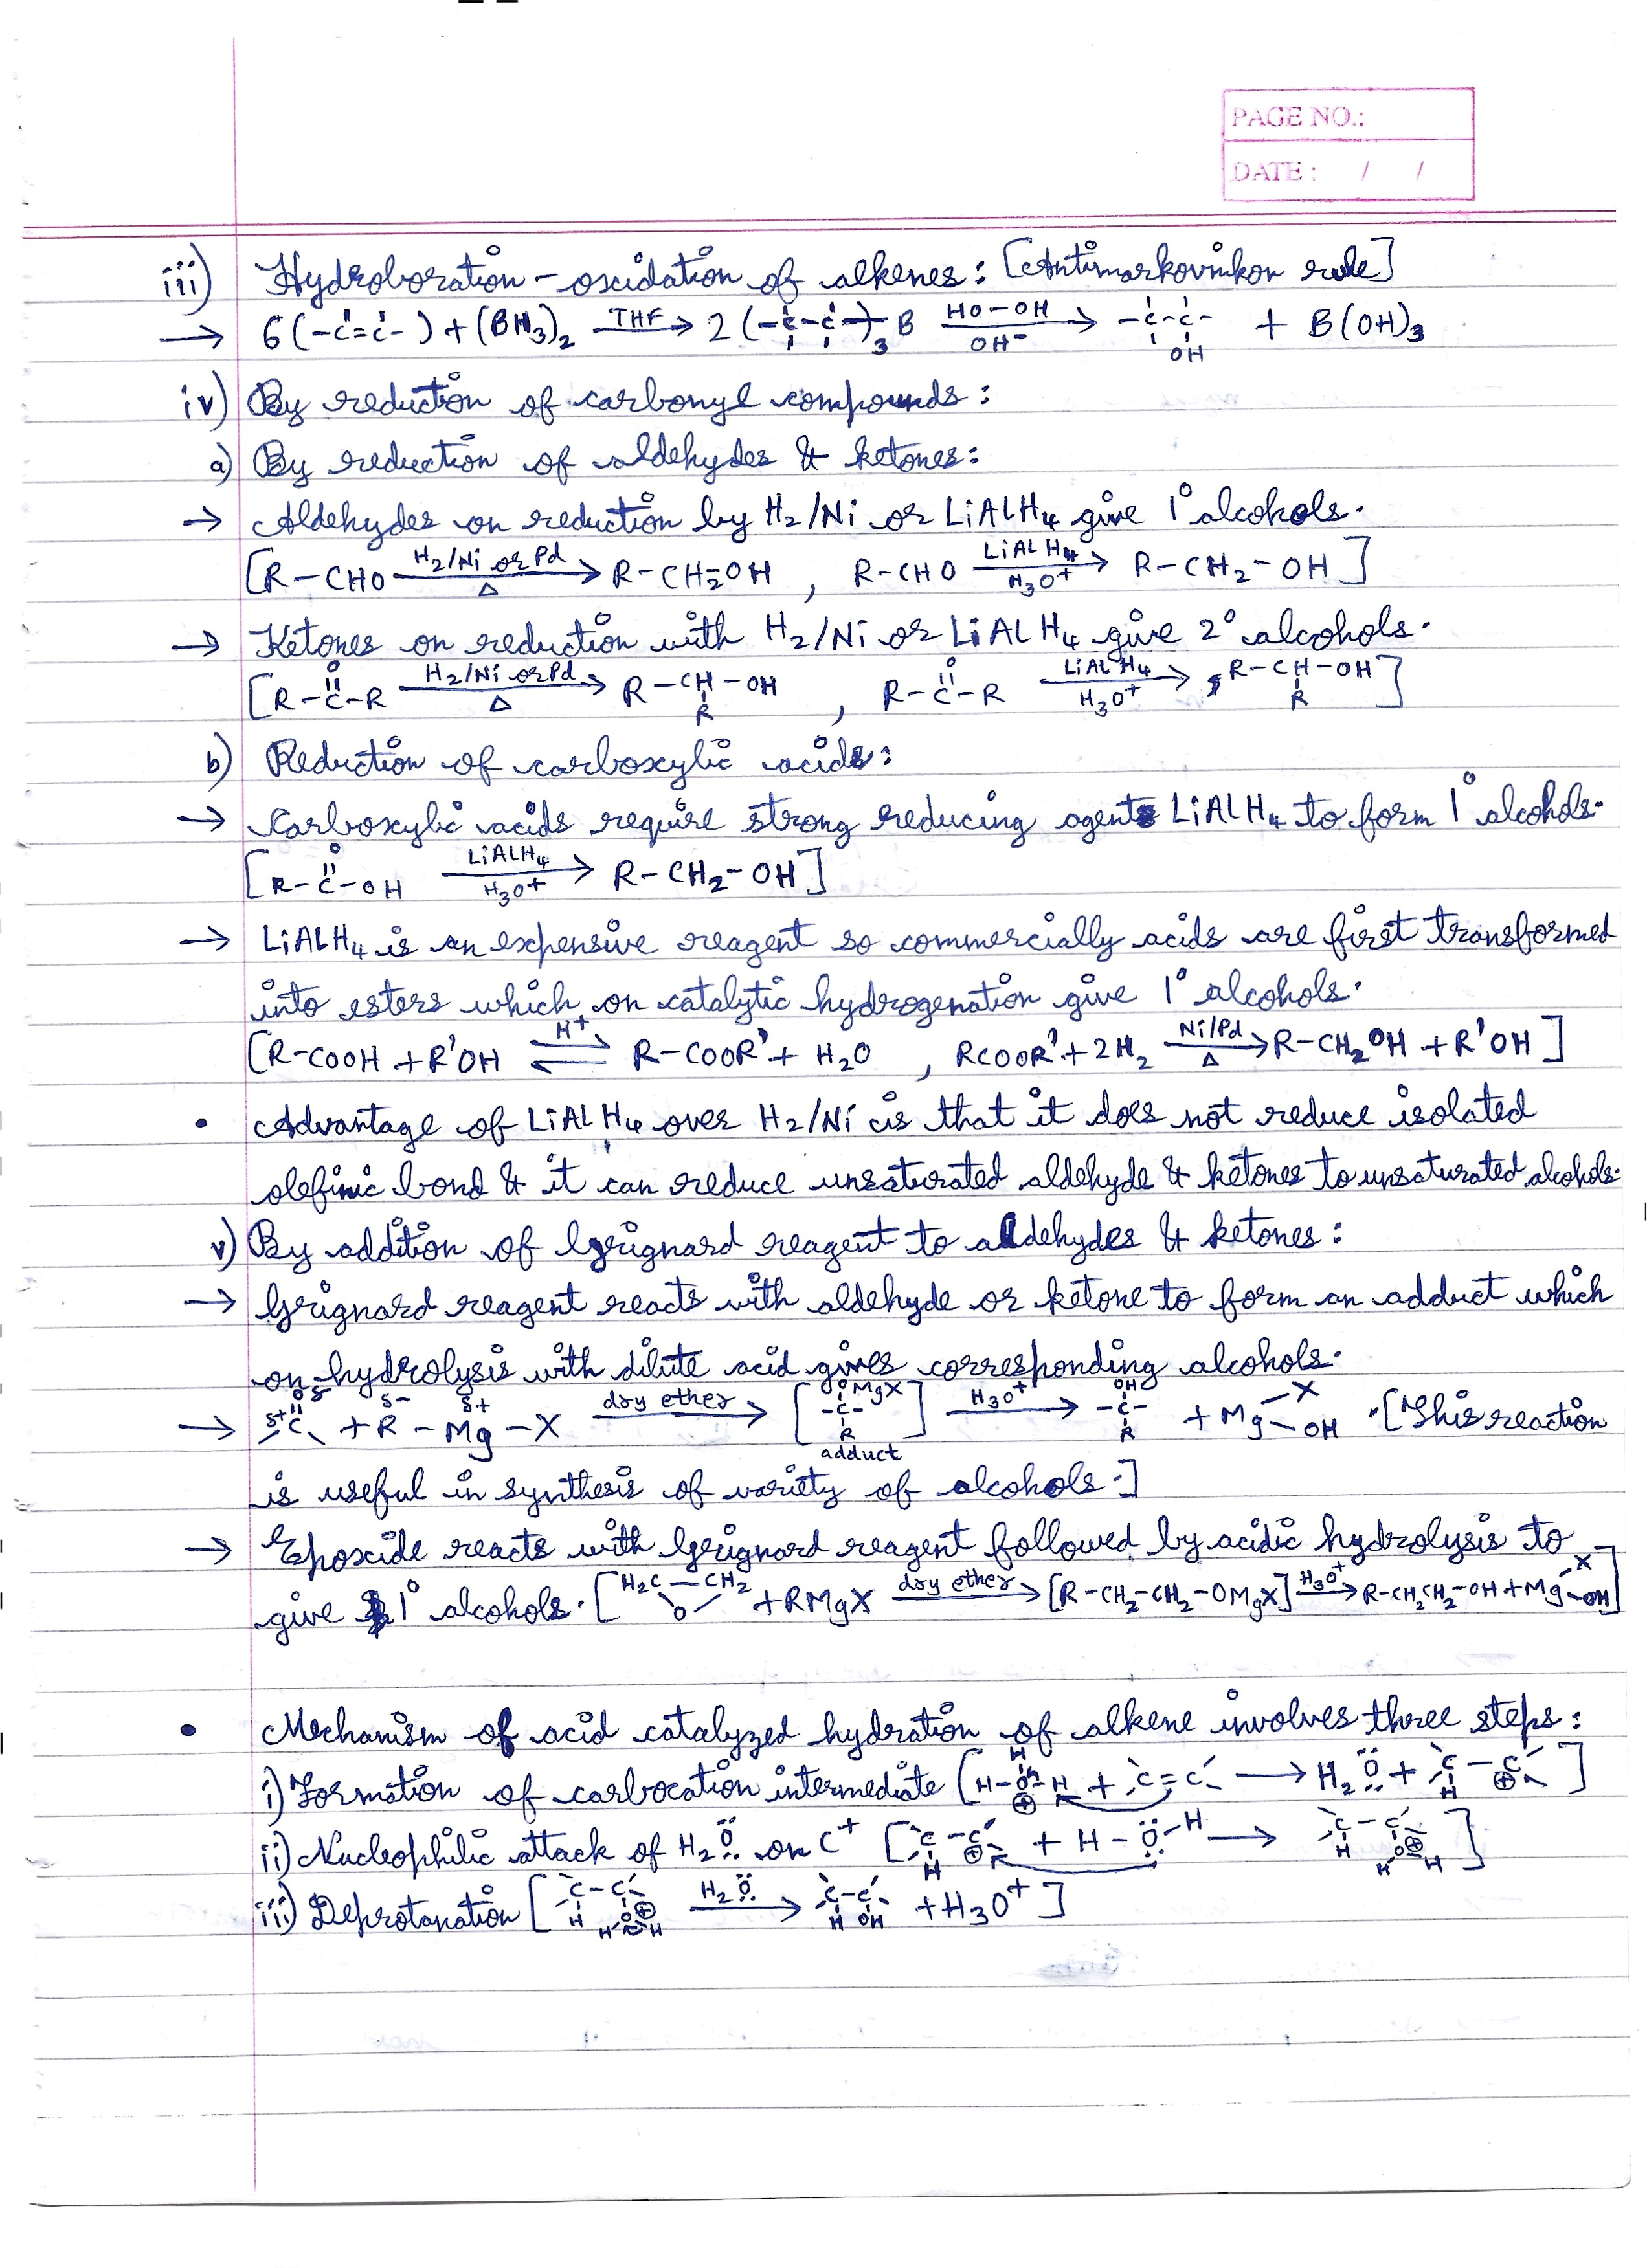 PAGE NO.:
DATE : / /
iii) Hydroboration - oxidation of alkenes : [Antimarkovnikov rule]
→ 6(-C=C-) + (BH₃)₂ —THF→ 2(-C-C-)₃B —HO-OH / OH⁻→ -C-C- OH + B(OH)₃
iv) By reduction of carbonyl compounds :
a) By reduction of aldehydes & ketones :
→ Aldehydes on reduction by H₂/Ni or LiAlH₄ give 1° alcohols.
[R-CHO —H₂/Ni or Pd / Δ→ R-CH₂-OH , R-CHO —LiAlH₄ / H₃O⁺→ R-CH₂-OH]
→ Ketones on reduction with H₂/Ni or LiAlH₄ give 2° alcohols.
[R-C(=O)-R —H₂/Ni or Pd / Δ→ R-CH(R)-OH , R-C(=O)-R —LiAlH₄ / H₃O⁺→ R-CH(R)-OH]
b) Reduction of carboxylic acids :
→ Carboxylic acids require strong reducing agents LiAlH₄ to form 1° alcohols.
[R-C(=O)-OH —LiAlH₄ / H₃O⁺→ R-CH₂-OH]
→ LiAlH₄ is an expensive reagent so commercially acids are first transformed
into esters which on catalytic hydrogenation give 1° alcohols.
[R-COOH + R'OH ⇌ H⁺ R-COOR' + H₂O , RCOOR' + 2H₂ —Ni/Pd / Δ→ R-CH₂OH + R'OH]
• Advantage of LiAlH₄ over H₂/Ni is that it does not reduce isolated
olefinic bond & it can reduce unsaturated aldehyde & ketones to unsaturated alcohols.
v) By addition of Grignard reagent to aldehydes & ketones :
→ Grignard reagent reacts with aldehyde or ketone to form an adduct which
on hydrolysis with dilute acid gives corresponding alcohols.
→ δ+C=Oδ- + Rδ- - Mgδ+ - X —dry ether→ [-C(OMgX)(R)-] adduct —H₃O⁺→ -C(OH)(R)- + Mg(X)(OH) . [This reaction
is useful in synthesis of variety of alcohols.]
→ Epoxide reacts with Grignard reagent followed by acidic hydrolysis to
give 1° alcohols. [H₂C-CH₂ O + RMgX —dry ether→ [R-CH₂-CH₂-OMgX] —H₃O⁺→ R-CH₂CH₂-OH + Mg(X)(OH)]
• Mechanism of acid catalyzed hydration of alkene involves three steps :
i) Formation of carbocation intermediate [H-O⊕(H)-H + C=C → H₂Ö: + C(H)-C⊕]
ii) Nucleophilic attack of H₂Ö: on C⁺ [C(H)-C⊕ + H-Ö:-H → C(H)-C-O⊕(H)H]
iii) Deprotonation [C(H)-C-O⊕(H)H —H₂Ö:→ C(H)-C(OH) + H₃O⁺]